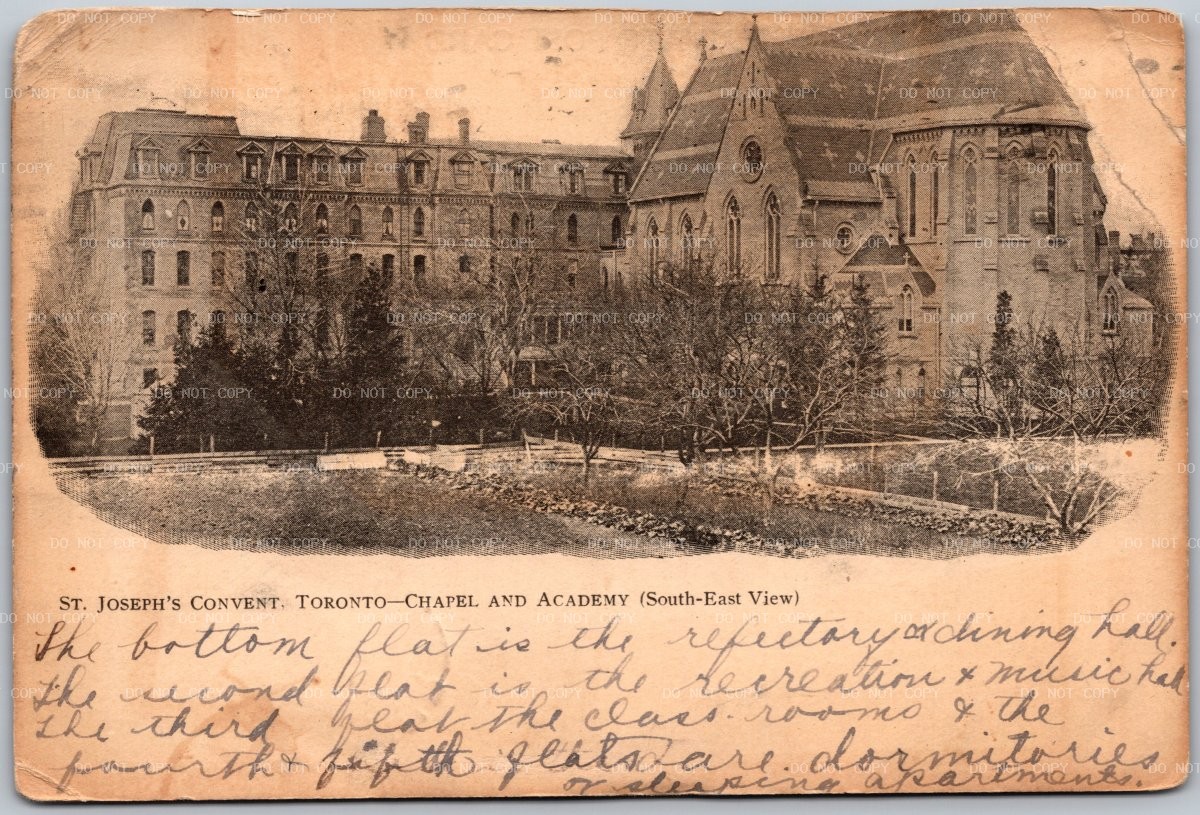 St. Joseph's Convent, Toronto—Chapel and Academy (South-East View)
The bottom flat is the refectory or dining hall.
The second flat is the recreation & music hall
The third flat the class-rooms & the
fourth & fifth flats are dormitories
or sleeping apartments.
DO NOT COPY